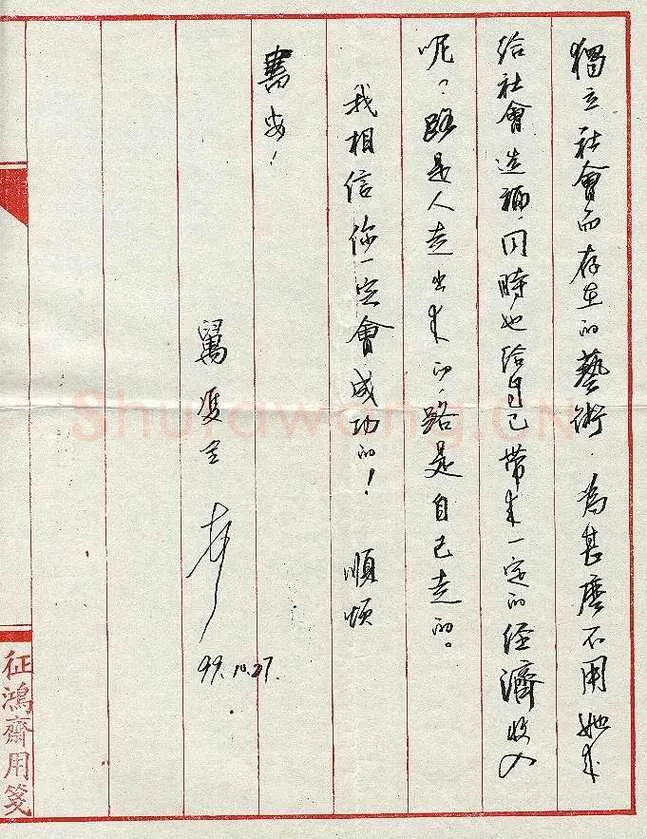 獨立社會而存在的藝術.為甚麼不用她來
給社會造福.同時也給自己帶來一定的經濟收入
呢?路是人走出來的.路是自己走的。
我相信你一定會成功的! 順頌
書安!
99.10.27.
征鴻齋用箋
Shufawang.CN